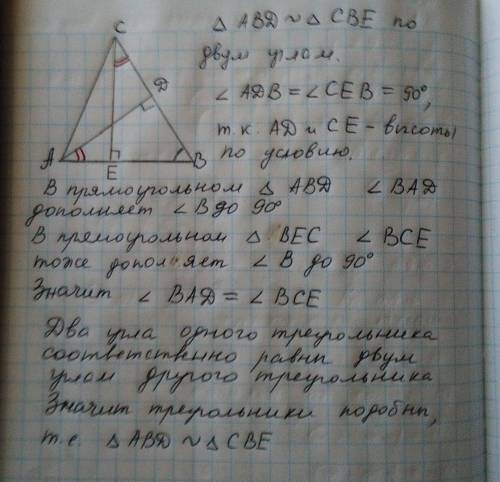 C
△ ABD ~ △ CBE по
двум углам.
D
∠ ADB = ∠ CEB = 90°,
т.к. AD и CE – высоты
A
B
по условию.
E
В прямоугольном △ ABD ∠ BAD
дополняет ∠ B до 90°
В прямоугольном △ BEC ∠ BCE
тоже дополяет ∠ B до 90°
Значит ∠ BAD = ∠ BCE
Два угла одного треугольника
соответственно равны двум
углам другого треугольника
Значит треугольники подобны,
т.е △ ABD ~ △ CBE